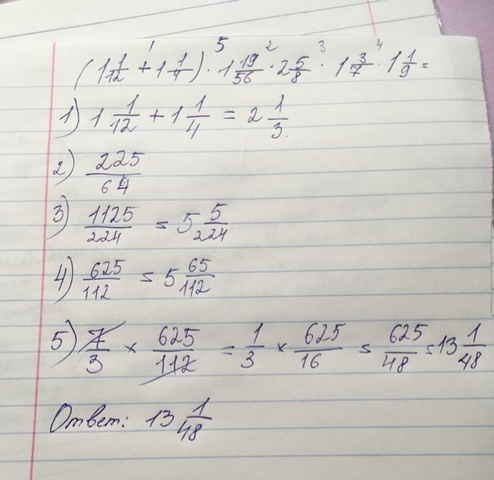 (1 1/12 + 1 1/4) · 1 19/56 · 2 5/8 · 1 3/7 · 1 1/9 =
1) 1 1/12 + 1 1/4 = 2 1/3.
2) 225/64
3) 1125/224 = 5 5/224
4) 625/112 = 5 65/112
5) 7/3 × 625/112 = 1/3 × 625/16 = 625/48 = 13 1/48
Ответ: 13 1/48